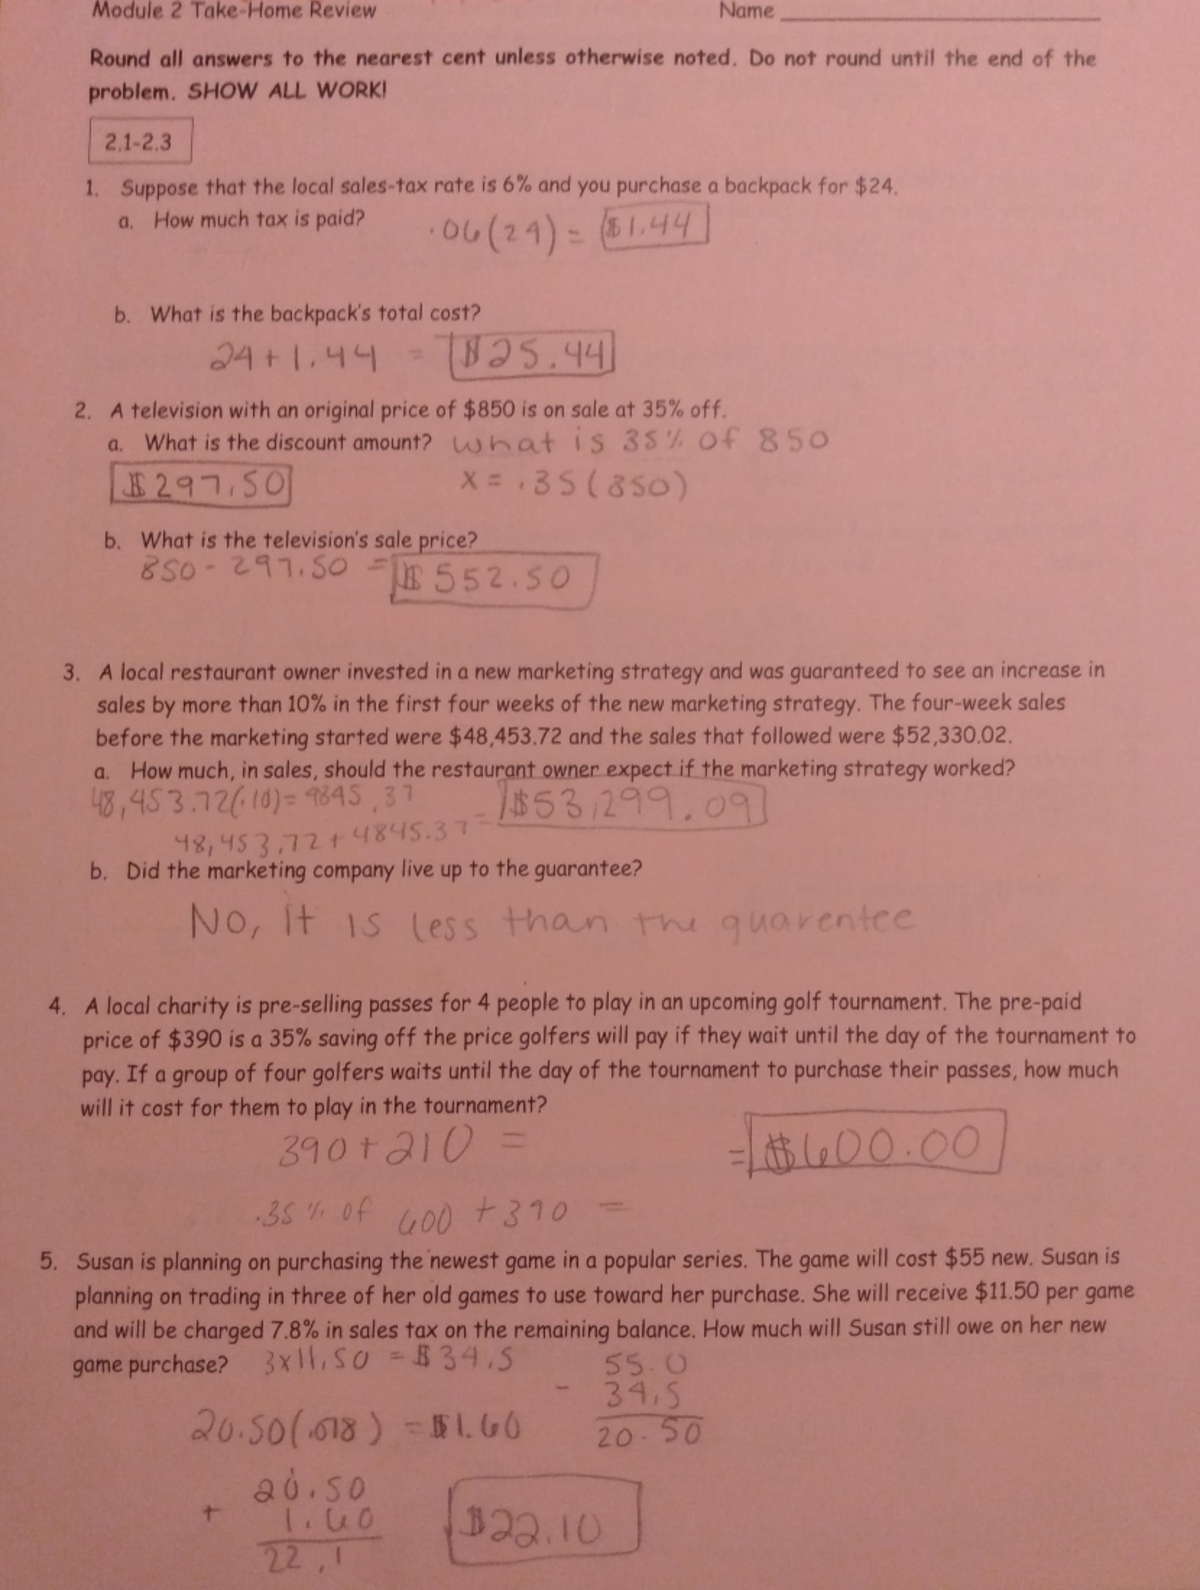 Module 2 Take-Home Review Name
Round all answers to the nearest cent unless otherwise noted. Do not round until the end of the
problem. SHOW ALL WORK!
2.1-2.3
1. Suppose that the local sales-tax rate is 6% and you purchase a backpack for $24.
a. How much tax is paid? .06(24) = $1.44
b. What is the backpack's total cost?
24+1.44 = $25.44
2. A television with an original price of $850 is on sale at 35% off.
a. What is the discount amount? What is 35% of 850
$297.50 x = .35(850)
b. What is the television's sale price?
850 - 297.50 = $552.50
3. A local restaurant owner invested in a new marketing strategy and was guaranteed to see an increase in
sales by more than 10% in the first four weeks of the new marketing strategy. The four-week sales
before the marketing started were $48,453.72 and the sales that followed were $52,330.02.
a. How much, in sales, should the restaurant owner expect if the marketing strategy worked?
48,453.72(.10) = 4845.37
48,453.72 + 4845.37 = $53,299.09
b. Did the marketing company live up to the guarantee?
No, it is less than the guarentee
4. A local charity is pre-selling passes for 4 people to play in an upcoming golf tournament. The pre-paid
price of $390 is a 35% saving off the price golfers will pay if they wait until the day of the tournament to
pay. If a group of four golfers waits until the day of the tournament to purchase their passes, how much
will it cost for them to play in the tournament?
390+210 = = $600.00
.35% of 600 + 390 =
5. Susan is planning on purchasing the newest game in a popular series. The game will cost $55 new. Susan is
planning on trading in three of her old games to use toward her purchase. She will receive $11.50 per game
and will be charged 7.8% in sales tax on the remaining balance. How much will Susan still owe on her new
game purchase? 3x11.50 = $34.5 55.0
- 34.5
20.50(.078) = $1.60 20.50
20.50
+ 1.60 $22.10
22.1